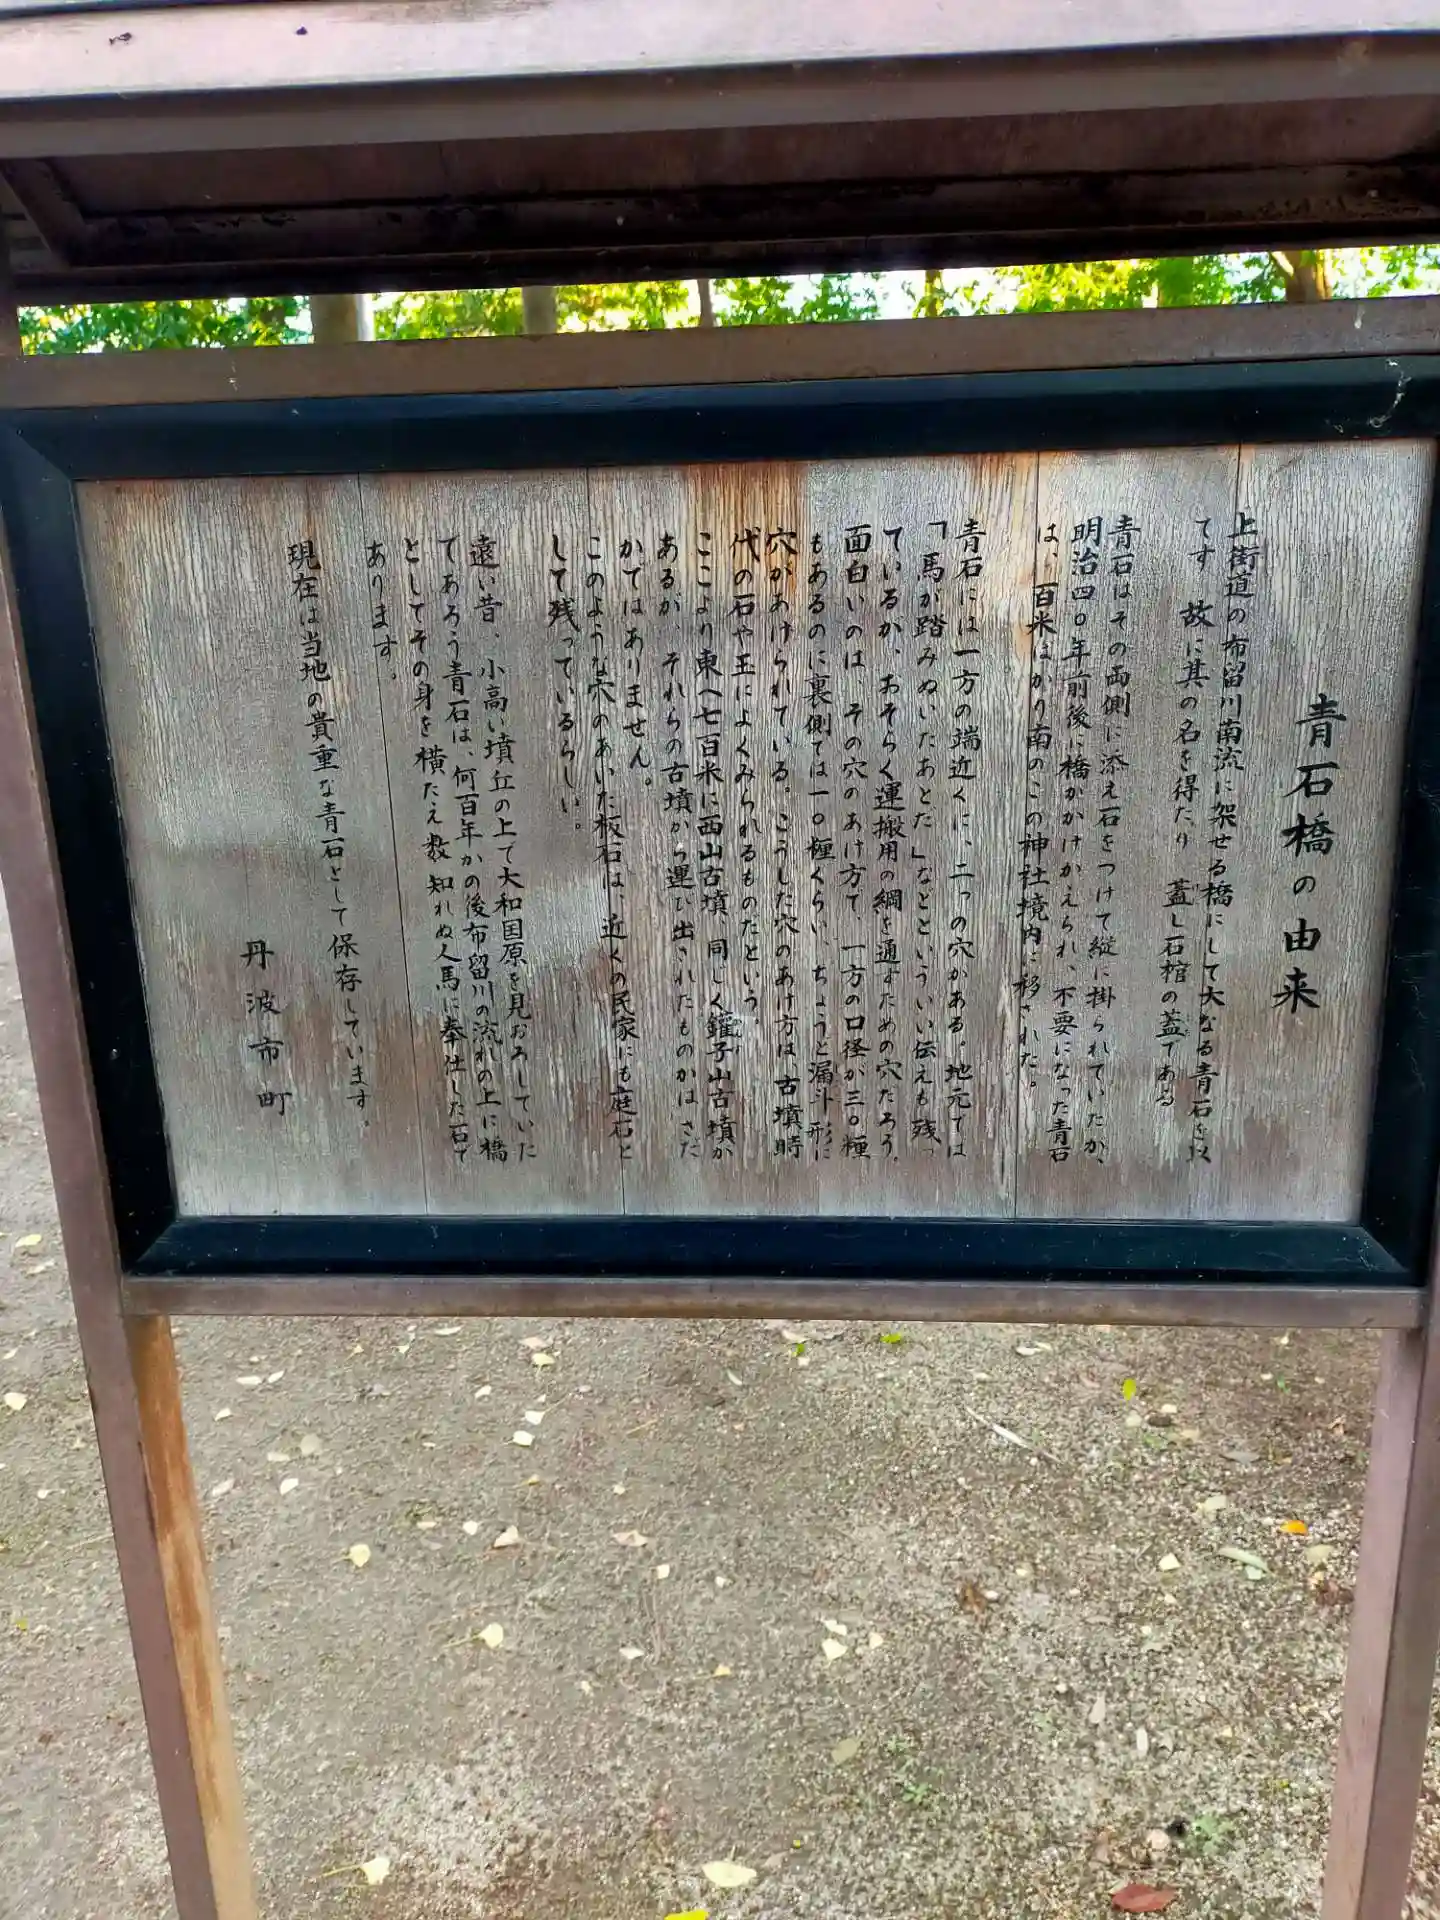 青石橋の由来
上街道の布留川南流に架せる橋にして大なる青石を以
てす 故に其の名を得たり 蓋し石棺の蓋である
青石はその両側に添え石をつけて縦に掛られていたが、
明治四〇年前後に橋がかけかえられ、不要になった青石
は、百米ばかり南のこの神社境内に移された。
青石には一方の端近くに、二つの穴がある。地元では
「馬が踏みぬいたあとだ」などといういい伝えも残っ
ているが、おそらく運搬用の綱を通すための穴だろう。
面白いのは その穴のあけ方で、一方の口径が三〇糎
もあるのに裏側では一〇糎くらい、ちょうど漏斗形に
穴があけられている。こうした穴のあけ方は 古墳時
代の石や玉によくみられるものだという。
ここより東へ七百米に西山古墳 同じく鑵子山古墳が
あるが、それらの古墳から運び出されたものかはさだ
かではありません。
このような穴のあいた板石は、近くの民家にも庭石と
して残っているらしい。
遠い昔、小高い墳丘の上で大和国原を見おろしていた
であろう青石は、何百年かの後布留川の流れの上に橋
としてその身を横たえ数知れぬ人馬に奉仕した石で
あります。
現在は当地の貴重な青石として保存しています。
丹波市町